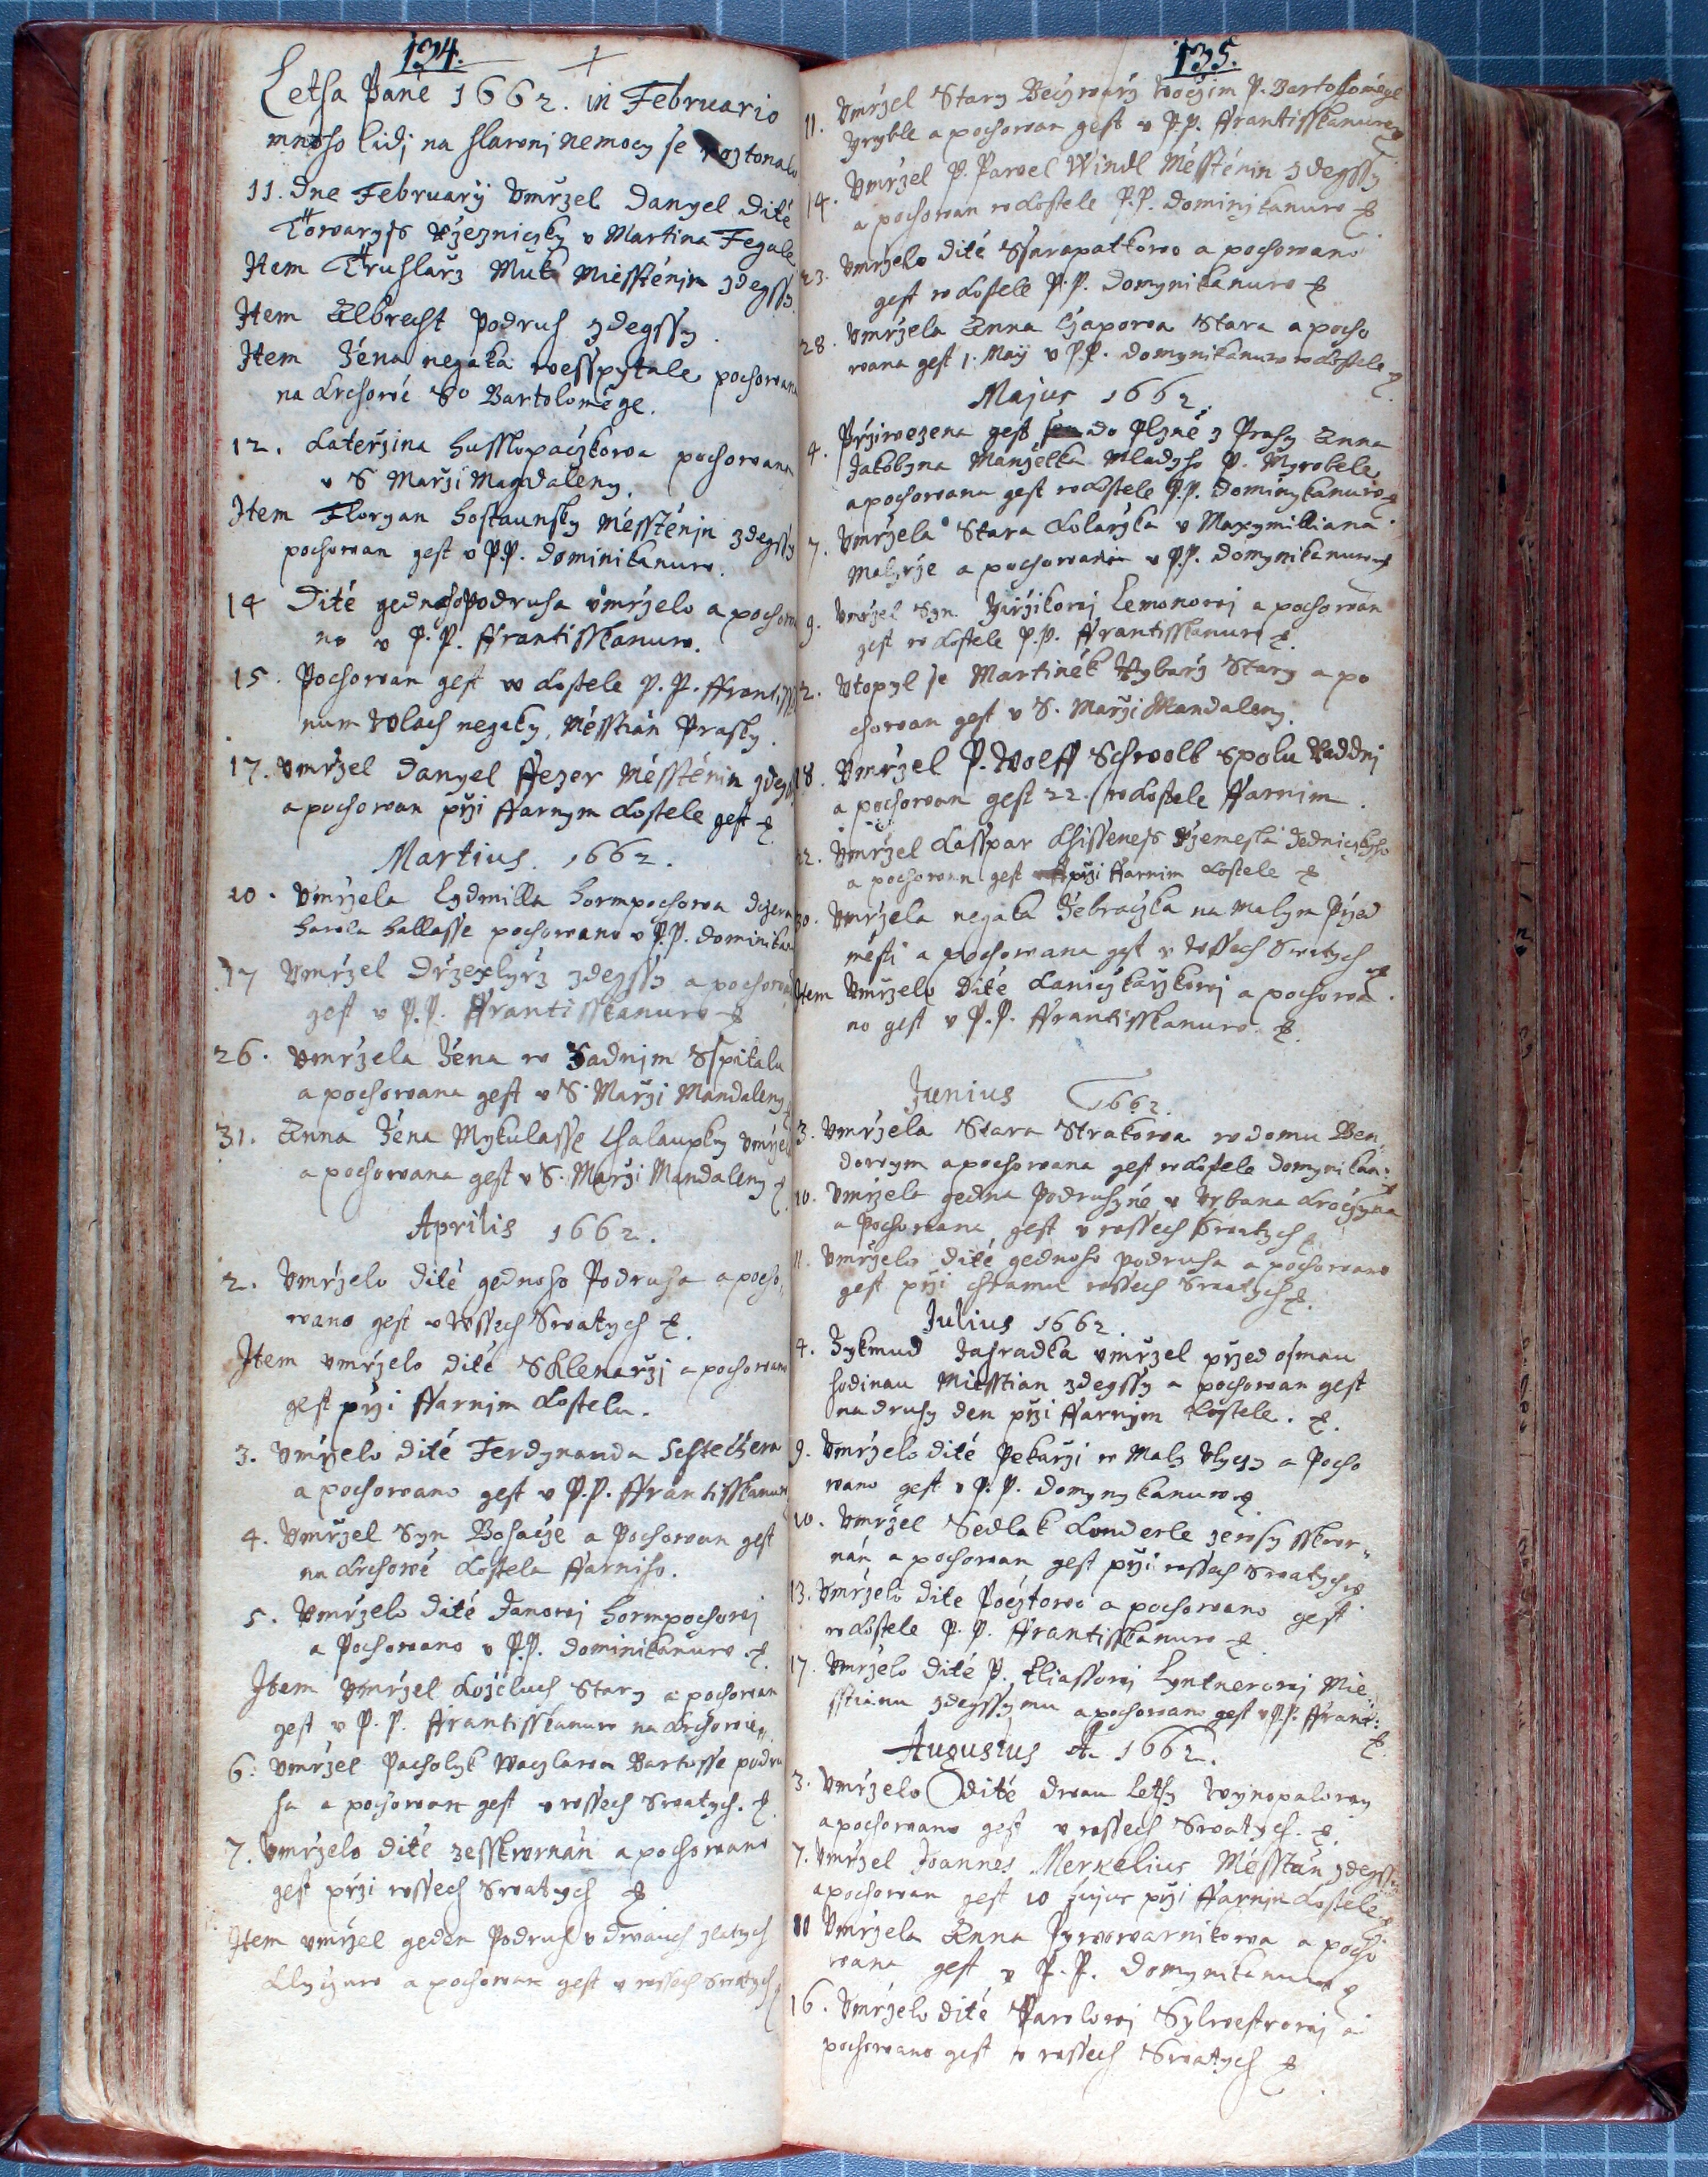 134.
Letha Pane 1662. in Februario
mnoho lidj na hlawnj nemocy se roztonalo
11. dne Februarij Vmržel Danyel Dité
Towaryss Ržeznicžky v Martina Fegale
Item Truhlarž Muk Miesstěnjn zdegssy
Item Albrecht Podruh zdegssy.
Item Žena negaka wesspytale pochowana
na Krchowě So Bartolomége.
12. Kateržina Hussko pochowana
v S Marži Magdaleny.
Item Floryan Hostaunsky Měsstěnjn zdegssy
pochowan gest v P.P. Dominikanuw.
14 Dité gednoho Podruha vmrželo a pochowa
no v P.P. Ffrantisskanuw.
15. Pochowan gest w Kostele P.P. Ffrantissk
num Wlach negaky, Měsstián Prasky.
17. Vmržel Danyel Ffezer Měsstěnin zdegssy
a pochowan prži Ffarnym Kostele gest
Martius. 1662.
10. Vmržela Lydmilla Hormpochowa dczera
Karla Hallasse pochowana v P.P. Dominikan
17 Vmržel Držexlyrž zdegssy a pochowan
gest v P.P. Ffrantisskanuw
26. Vmržela Žena w Zadnjm Sspitalu
a pochowana gest v S. Marži Mandaleny
31. Anna Žena Mykulasse Chalaupky Vmržela
a pochowana gest v S. Marži Mandaleny
Aprilis 1662.
2. Vmrželo dité gednoho Podruha a pocho,
wano gest v Wssech Swatych
Item vmrželo dité Sklenarži a pochowano
gest prži Ffarnjm Kostelu.
3. Vmrželo dité Ferdynanda
a pochowano gest v P.P. Ffrantisskanuw
4. Vmržel Syn Bohacže a Pochowan gest
na Krchowě Kostela Ffarniho.
5. Vmrželo dité Janowj Hormpochowj
a Pochowano v P.P. Dominikanuw.
Item Vmržel Koželuh Stary a pochowan
gest v P.P. Ffrantisskanuw na Krchowie.
6. Vmržel Pacholyk Waczlawa Bartosse podru
ha a pochowan gest v wssech Swatych.
7. Vmrželo dité zesskwrnan a pochowano
gest prži wssech Swatych
Item vmržel geden Podruh v dwauch zlatych
Klycžuw a pochowan gest v wssech Swatych
135.
11. Vmržel Stary Becžwarž P. Bartolomége
a pochowan gest v P.P. Ffrantisskanuw
14. Vmržel P. Pawel Windl Měsstěnin zdegssy
a pochowan w Kostele P.P. Dominjkanuw
23. Vmrželo dité Ssarapatkowo a pochowano
gest w Kostele P.P. Domynikanuw
28. Vmržela Anna Cžapowa Stara a pocho
wana gest 1. Maij v P.P. Domynikanuw w Kostele
Majus 1662.
4. Pržiwezena gest do Plzně z Prahy Anna
Jakobyna Manželka mladyho P. Myrobele
a pochowana gest w Kostele P.P. Dominykanuw
7. Vmržela Stara Kolaržka v Maxymilliana
Malyrže a pochowana v P.P. Domynikanuw
9. Vmržel Syn Jiržikowj Lemonowj a pochowan
gest w Kostele P.P. Ffrantisskanuw
12. Vtopyl se Martinek Rybarž Stary a po
chowan gest v S. Marži Mandaleny.
18. Vmržel P. Wolff Schwolb Spolu Raddnj
a pochowan gest 22. w Kostele Ffarnim.
22. Vmržel Kasspar ržemesla
a pochowan gest prži Ffarnim Kostele
30. Vmržela negaka Žebracžka na Malym Pržed
mésti a pochowana gest v wssech Swatych
Item Vmrželo Dité a pochowa
no gest v P.P. Ffrantisskanuw.
Junius 1662.
3. Vmržela Stara Strakowa w domu Ben,,
dowym a pochowana gest w Kostele Domynikan:
10. Vmržela gedna Podruhyně v Vrbana
a Pochowana gest v wssech Swatych
11. Vmrželo dité gednoho podruha a pochowano
gest prži chramu wssech Swatych
Julius 1662.
4. Zykmud Zahradka vmržel pržed osmau
hodinau Miesstian zdegssy a pochowan gest
na druhy den prži Ffarnym Kostele.
9. Vmrželo dité Pekarži w Maly Vlyczy a Pocho
wano gest v P.P. Domynykanuw
10. Vmržel Sedlak Konderle ze wsy sskwr,,
ňán a pochowan gest prži wssech Swatych
13. Vmrželo dite Pocžtowo a pochowano gest
w Kostele P.P. Ffrantisskanuw
17. Vmrželo dité P. Eliassowj Lyntnerowj Mie,,
sstianu zdegssymu a pochowano gest v P.P. Ffrant:
Augustus A. 1662.
3. Vmrželo dité dwau Lethy Wynopalowy
a pochowano gest v wssech Swatych.
7. Vmržel Joannes Merxelius Měsstan zdegssy
a pochowan gest 10 hujus prži Ffarnjm Kostele
11 Vmržela Anna Pywowarnikowa a pocho
wana gest v P.P. Domynikanuw
16. Vmrželo dité Pawlowj Sylwestrowj a
pochowano gest v wssech Swatych